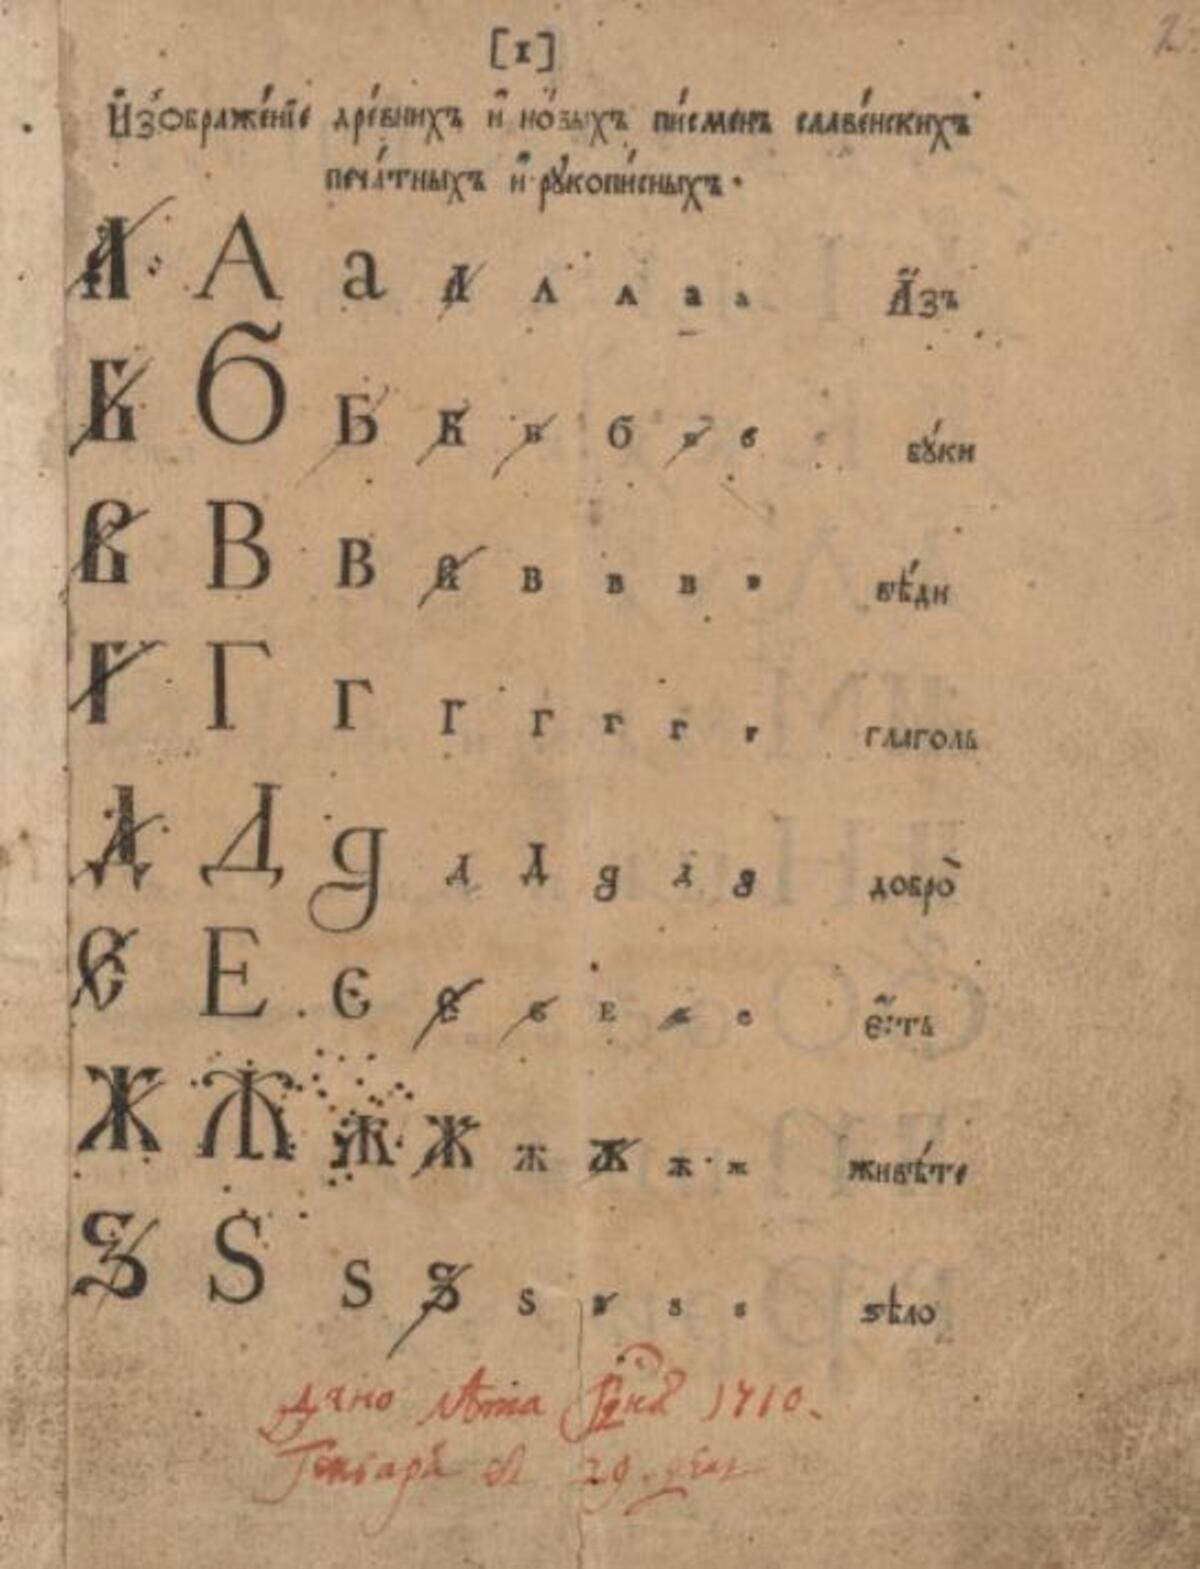 [1]
И҆зѡбраже́нїе дре́внихъ и҆ но́выхъ пи́сменъ славе́нскихъ
печа́тныхъ и҆ рꙋкопи́сныхъ.
А А а А А А а а А҆́зъ
Б Б Б Б Б Б Б Б бꙋ́ки
В В В В В В В В вѣ́ди
Г Г Г Г Г Г Г Г глаголь
Д Д д Д Д д Д д добро̀
Є Е є Є є Е є є є҆́сть
Ж Ж Ж Ж Ж Ж Ж Ж живѣ́те
Ѕ Ѕ Ѕ Ѕ Ѕ Ѕ Ѕ Ѕ ѕѣло
дано лѣта 1710.
Генваря в 29. день